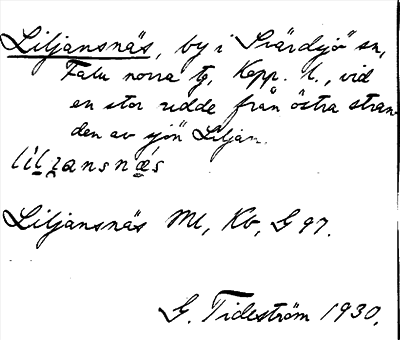 Liljansnäs, by i Svärdsjö sn,
Falu norra tg, Kopp. l., vid
en stor udde från östra stran-
den av sjön Liljan.
liljansnäs
Liljansnäs Ml, Kb, G 97.
G. Tideström 1930.